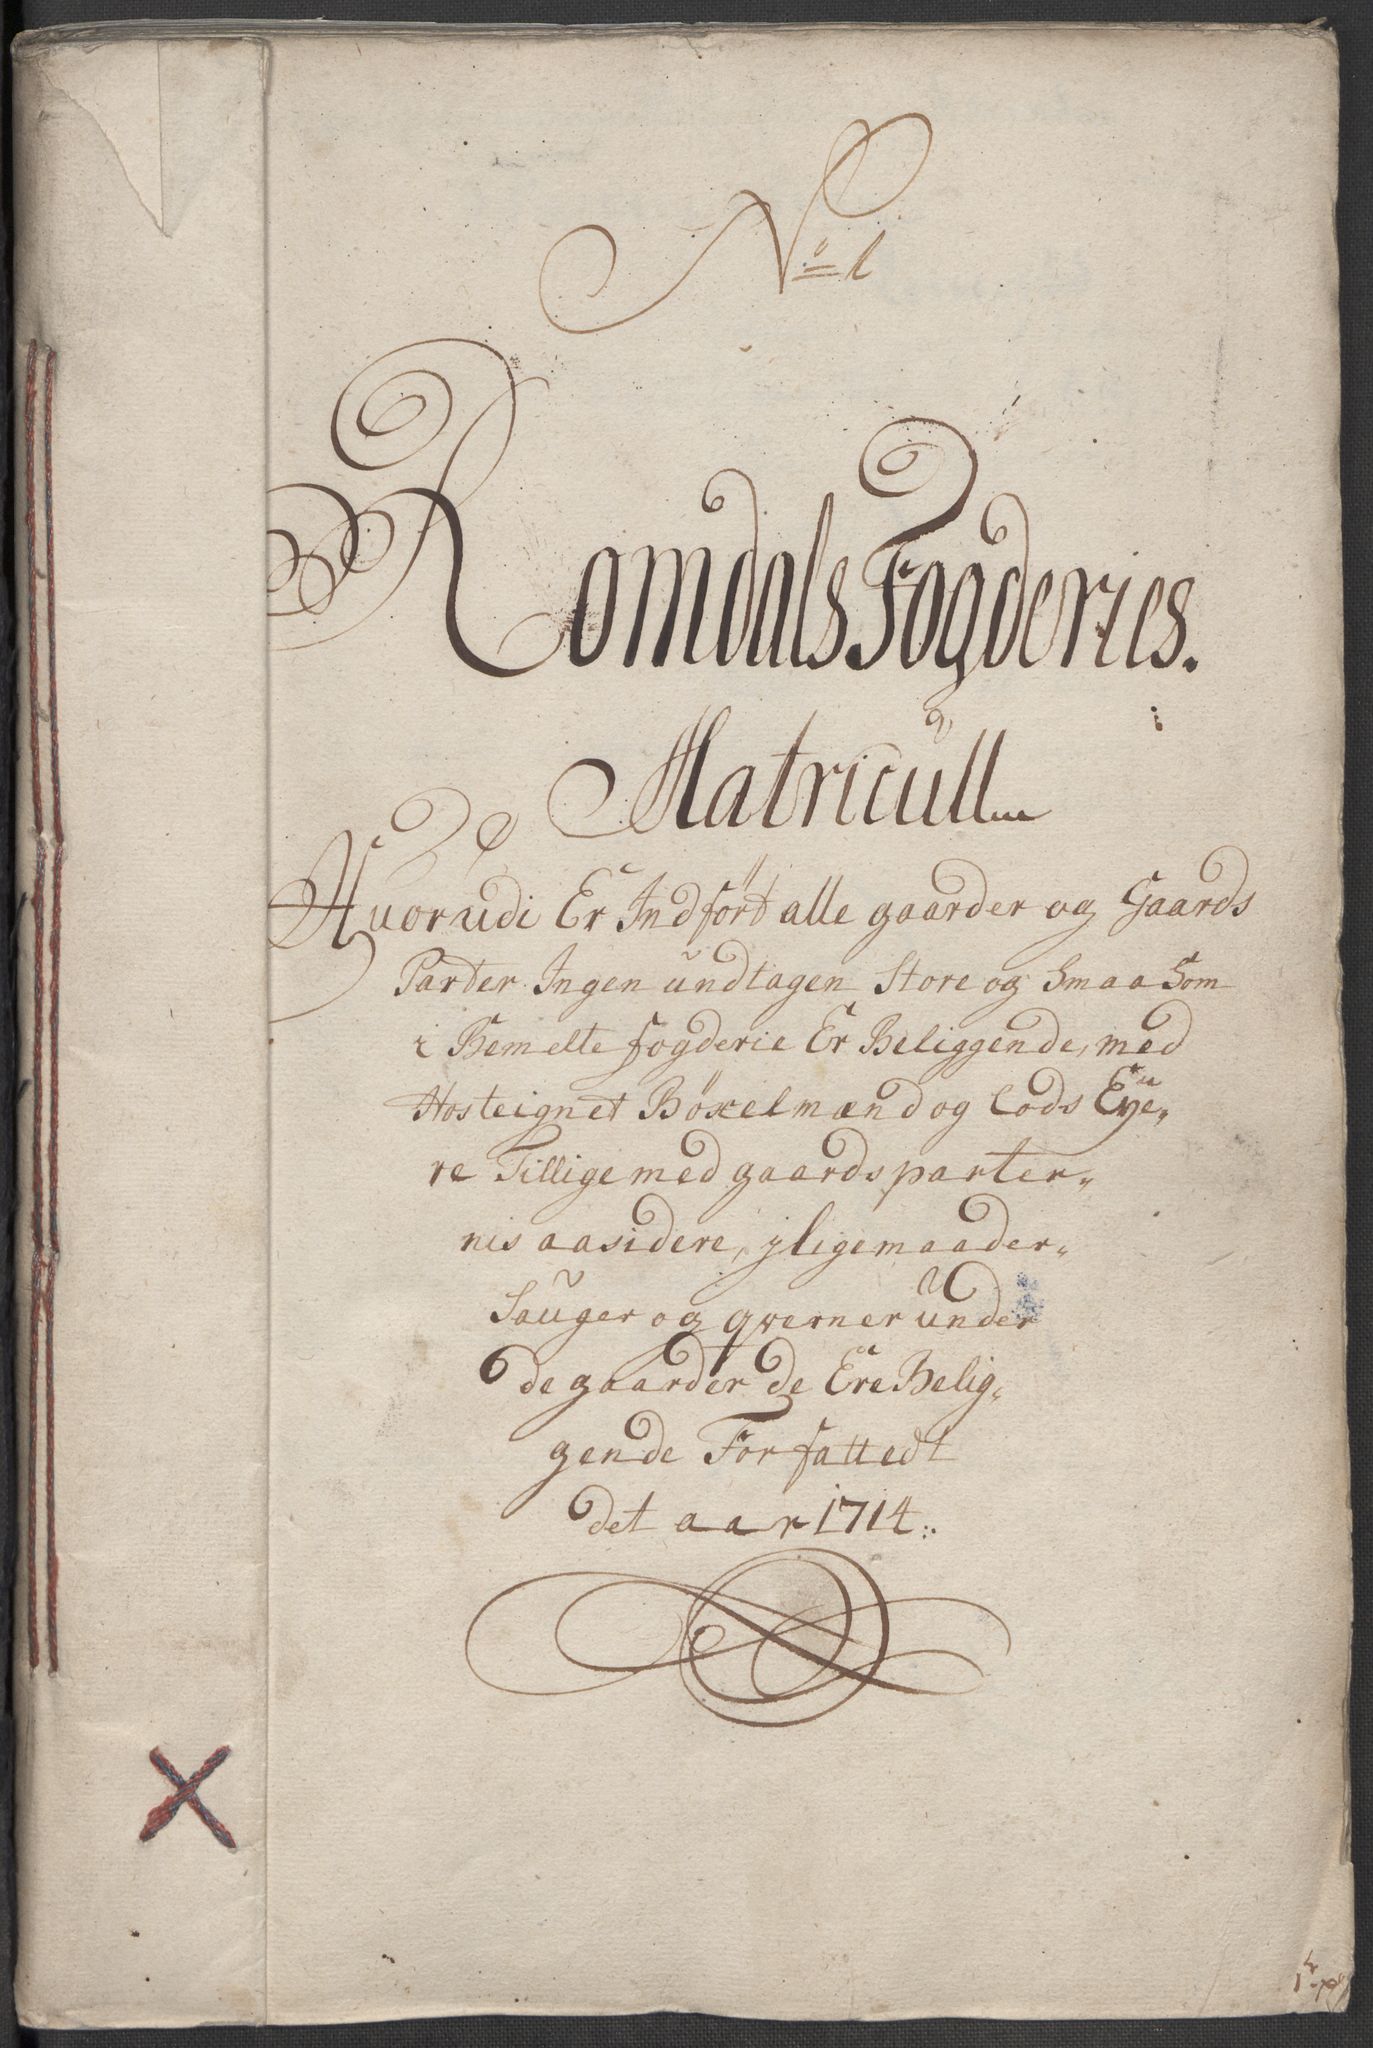 No 1
Romdals Fogderies.
Matricull
Huorudi Er Indført alle gaarder og Gaards
Parter Ingen undtagen Store og Smaa Som
i Bemelte fogderie Er Beliggende, med
Hosteignet Böxelmænd og Lods Eye,,
re Tillige med gaards parter,,
nis aasidere, jligemaader,,
Sauger og qverner under
de gaarder de Ere Belig,,
gende Forfattedt
det aar 1714.